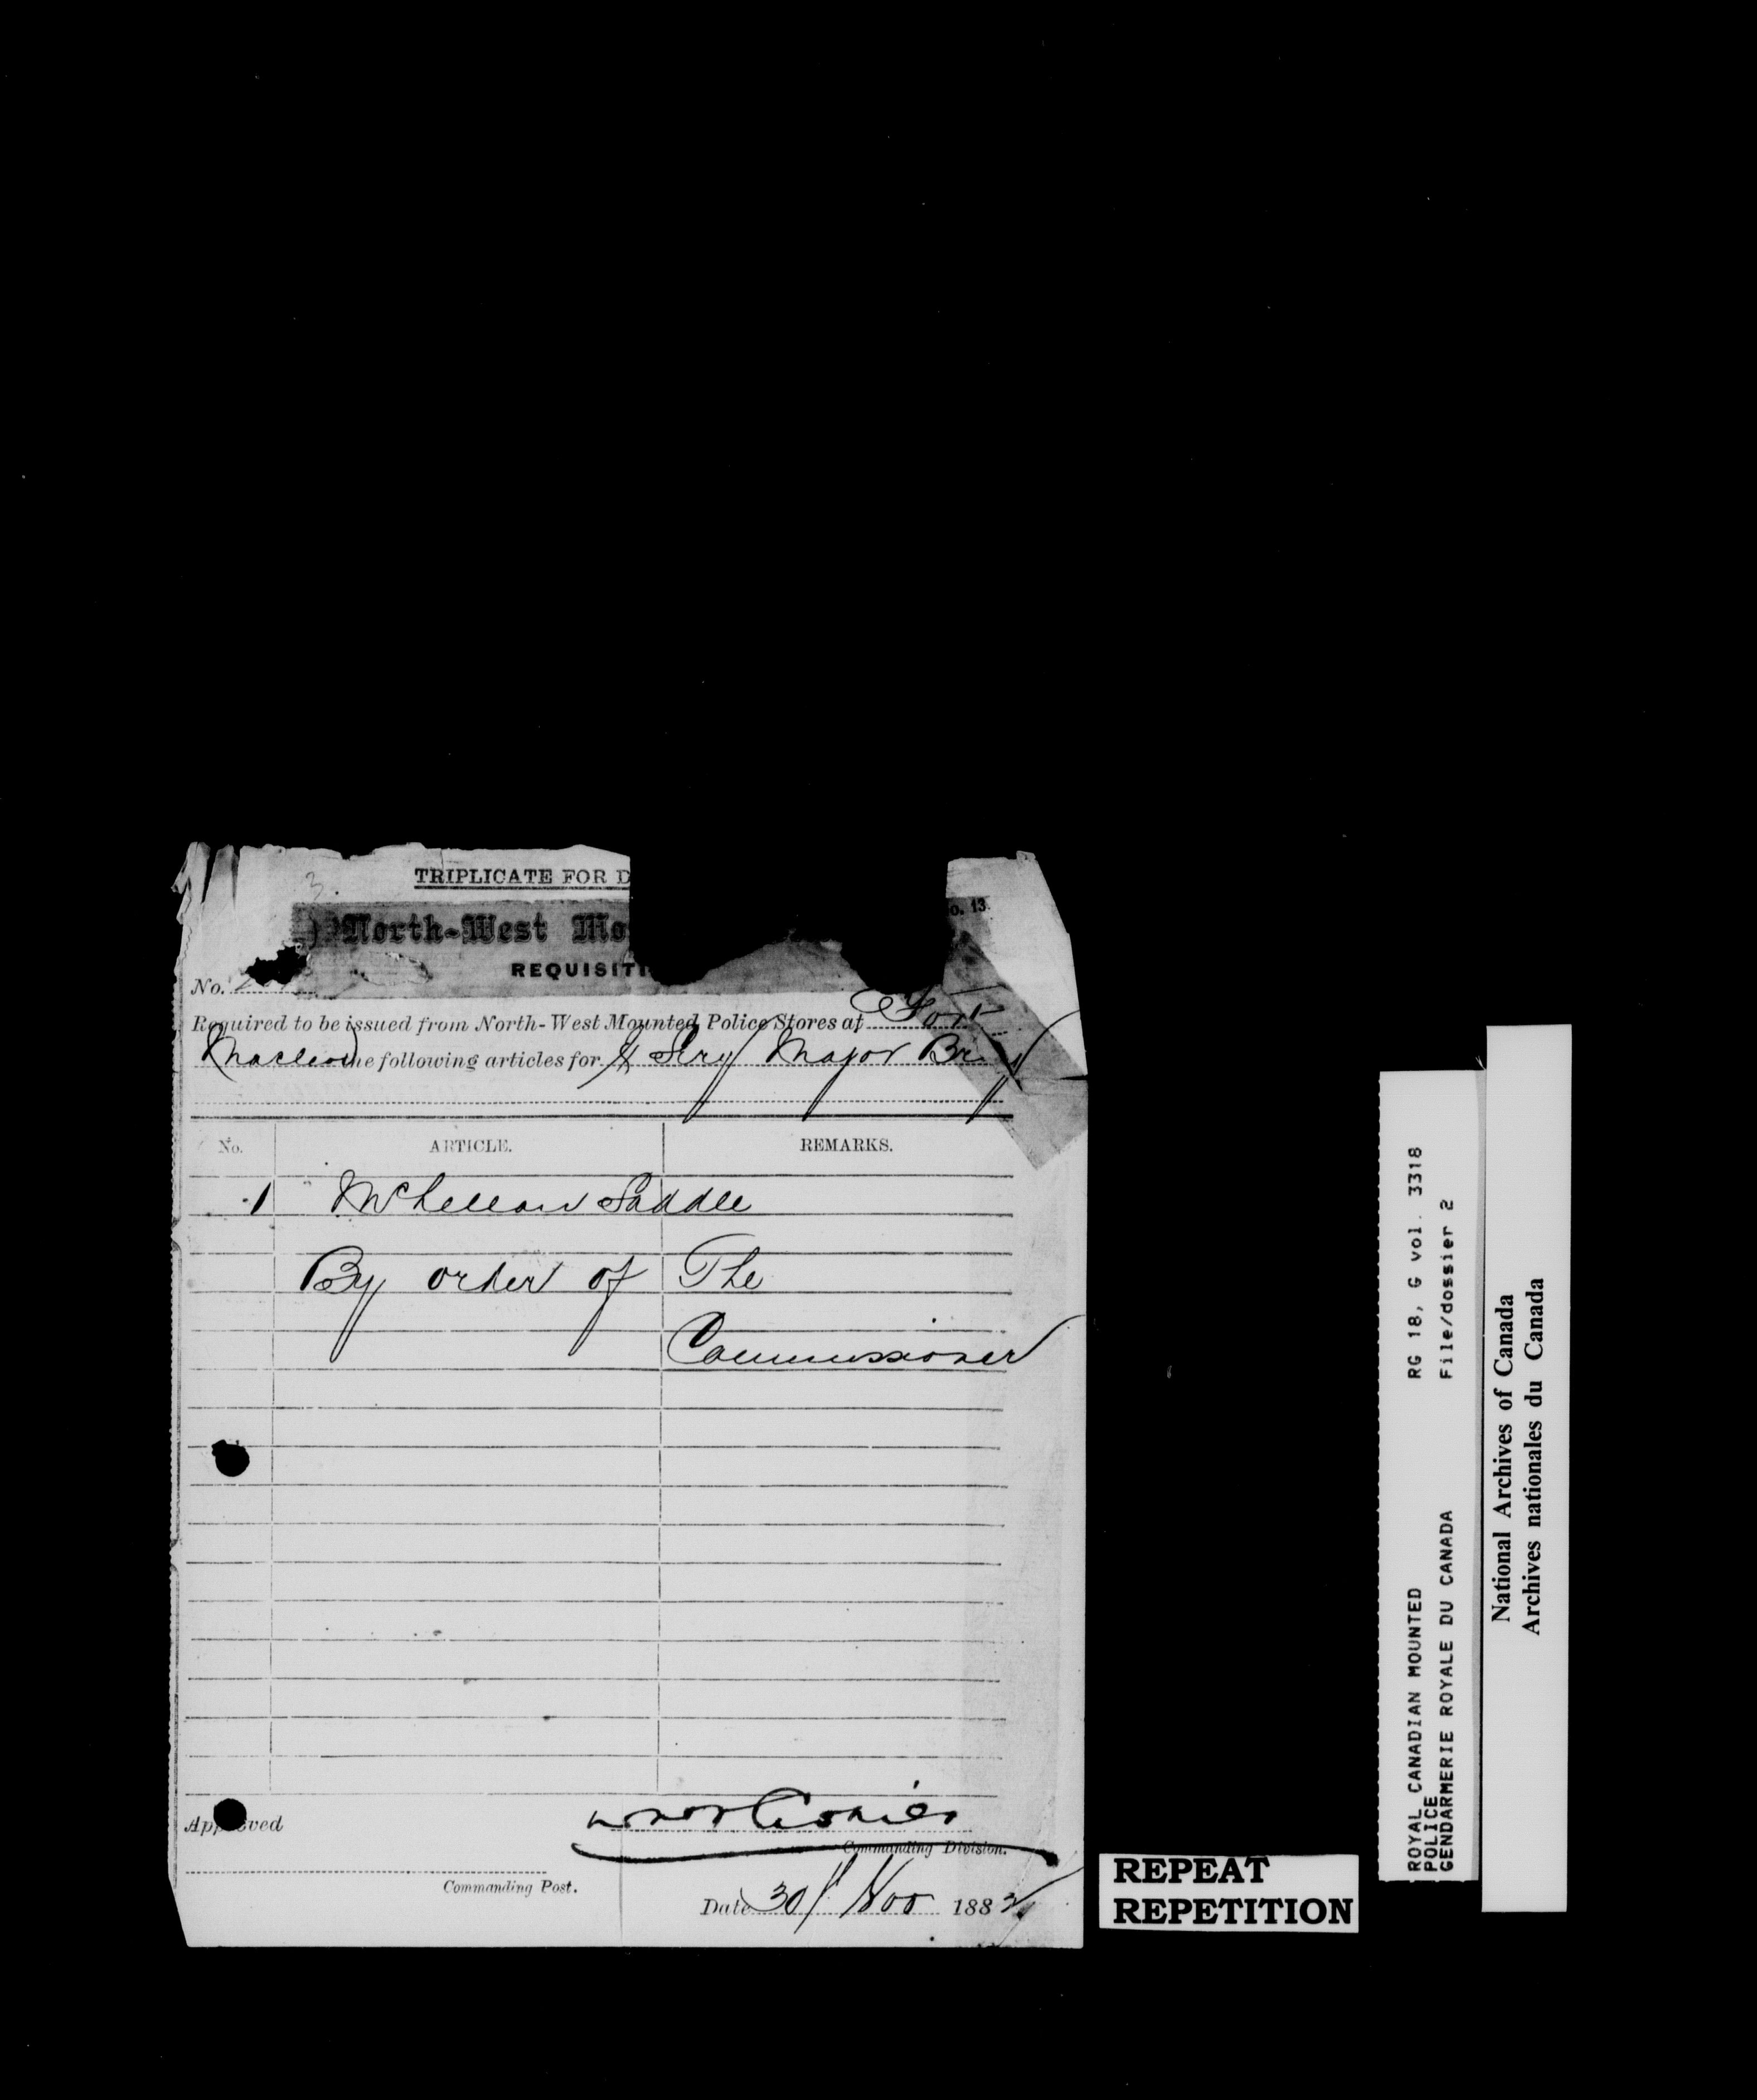 3.
TRIPLICATE FOR D
o. 13.
North-West Mo
REQUISITI
No.
Required to be issued from North-West Mounted Police Stores at Fort
Macleod he following articles for Sergt Major
No. ARTICLE. REMARKS.
1 McLellan Saddle
By order of The
Commissioner
Approved
Commanding Division.
Commanding Post.
Date 30/ Nov 1882
REPEAT
REPETITION
ROYAL CANADIAN MOUNTED RG 18, G vol. 3318
POLICE File/dossier 2
GENDARMERIE ROYALE DU CANADA
National Archives of Canada
Archives nationales du Canada